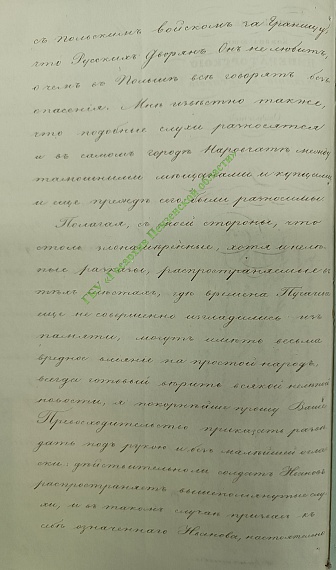 съ Польскимъ войскомъ за границу,
что Русскихъ Дворянъ Онъ не любитъ,
о чемъ въ Польшѣ всѣ говорятъ безъ
опасенія. Мнѣ извѣстно также,
что подобные слухи разносятся
и въ самомъ городѣ Наровчатѣ между
тамошними мѣщанами и купцами
и еще прежде сего были разносимы
Полагая, съ моей стороны, что
столь злонамѣренные, хотя и нелѣ-
пые разказы, распространяемые въ
тѣхъ мѣстахъ, гдѣ времена Пугачева
еще не совершенно изгладились изъ
памяти, могутъ имѣть весьма
вредное вліяніе на простой народъ,
всегда готовый вѣрить всякой нелѣпой
новости, я покорнѣйше прошу Ваше
Превосходительство приказать развѣ-
дать подъ рукою и безъ малѣйшей оглас-
ки: дѣйствительно ли солдатъ Ивановъ
распространяетъ вышеупомянутые слу-
хи, и въ такомъ случаѣ призвавъ къ
себѣ означеннаго Иванова, настоятельно
ГБУ «Госархив Пензенской области»